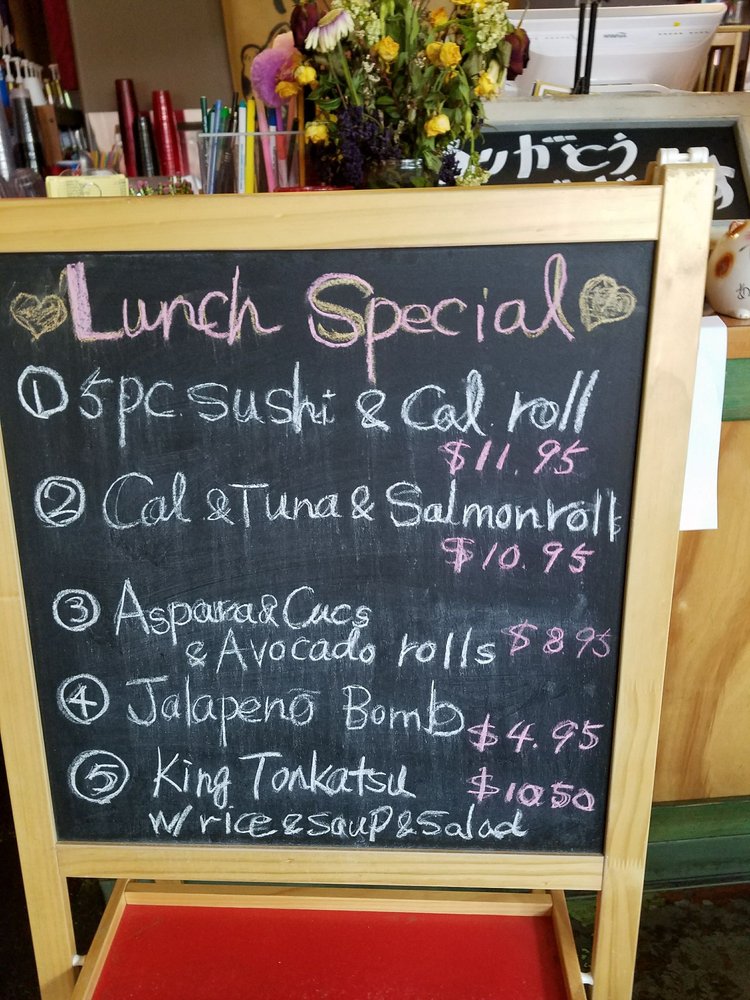 ありがとう
Lunch Special
① 5pc sushi & Cal. roll
$11.95
② Cal & Tuna & Salmon rolls
$10.95
③ Aspara & Cucs
& Avocado rolls $8.95
④ Jalapeño Bomb $4.95
⑤ King Tonkatsu $10.50
w/ rice & soup & Salad